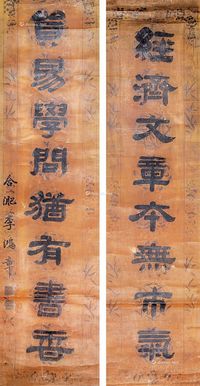 經濟文章本無市氣
貿易學問猶有書香
合淝李鴻章